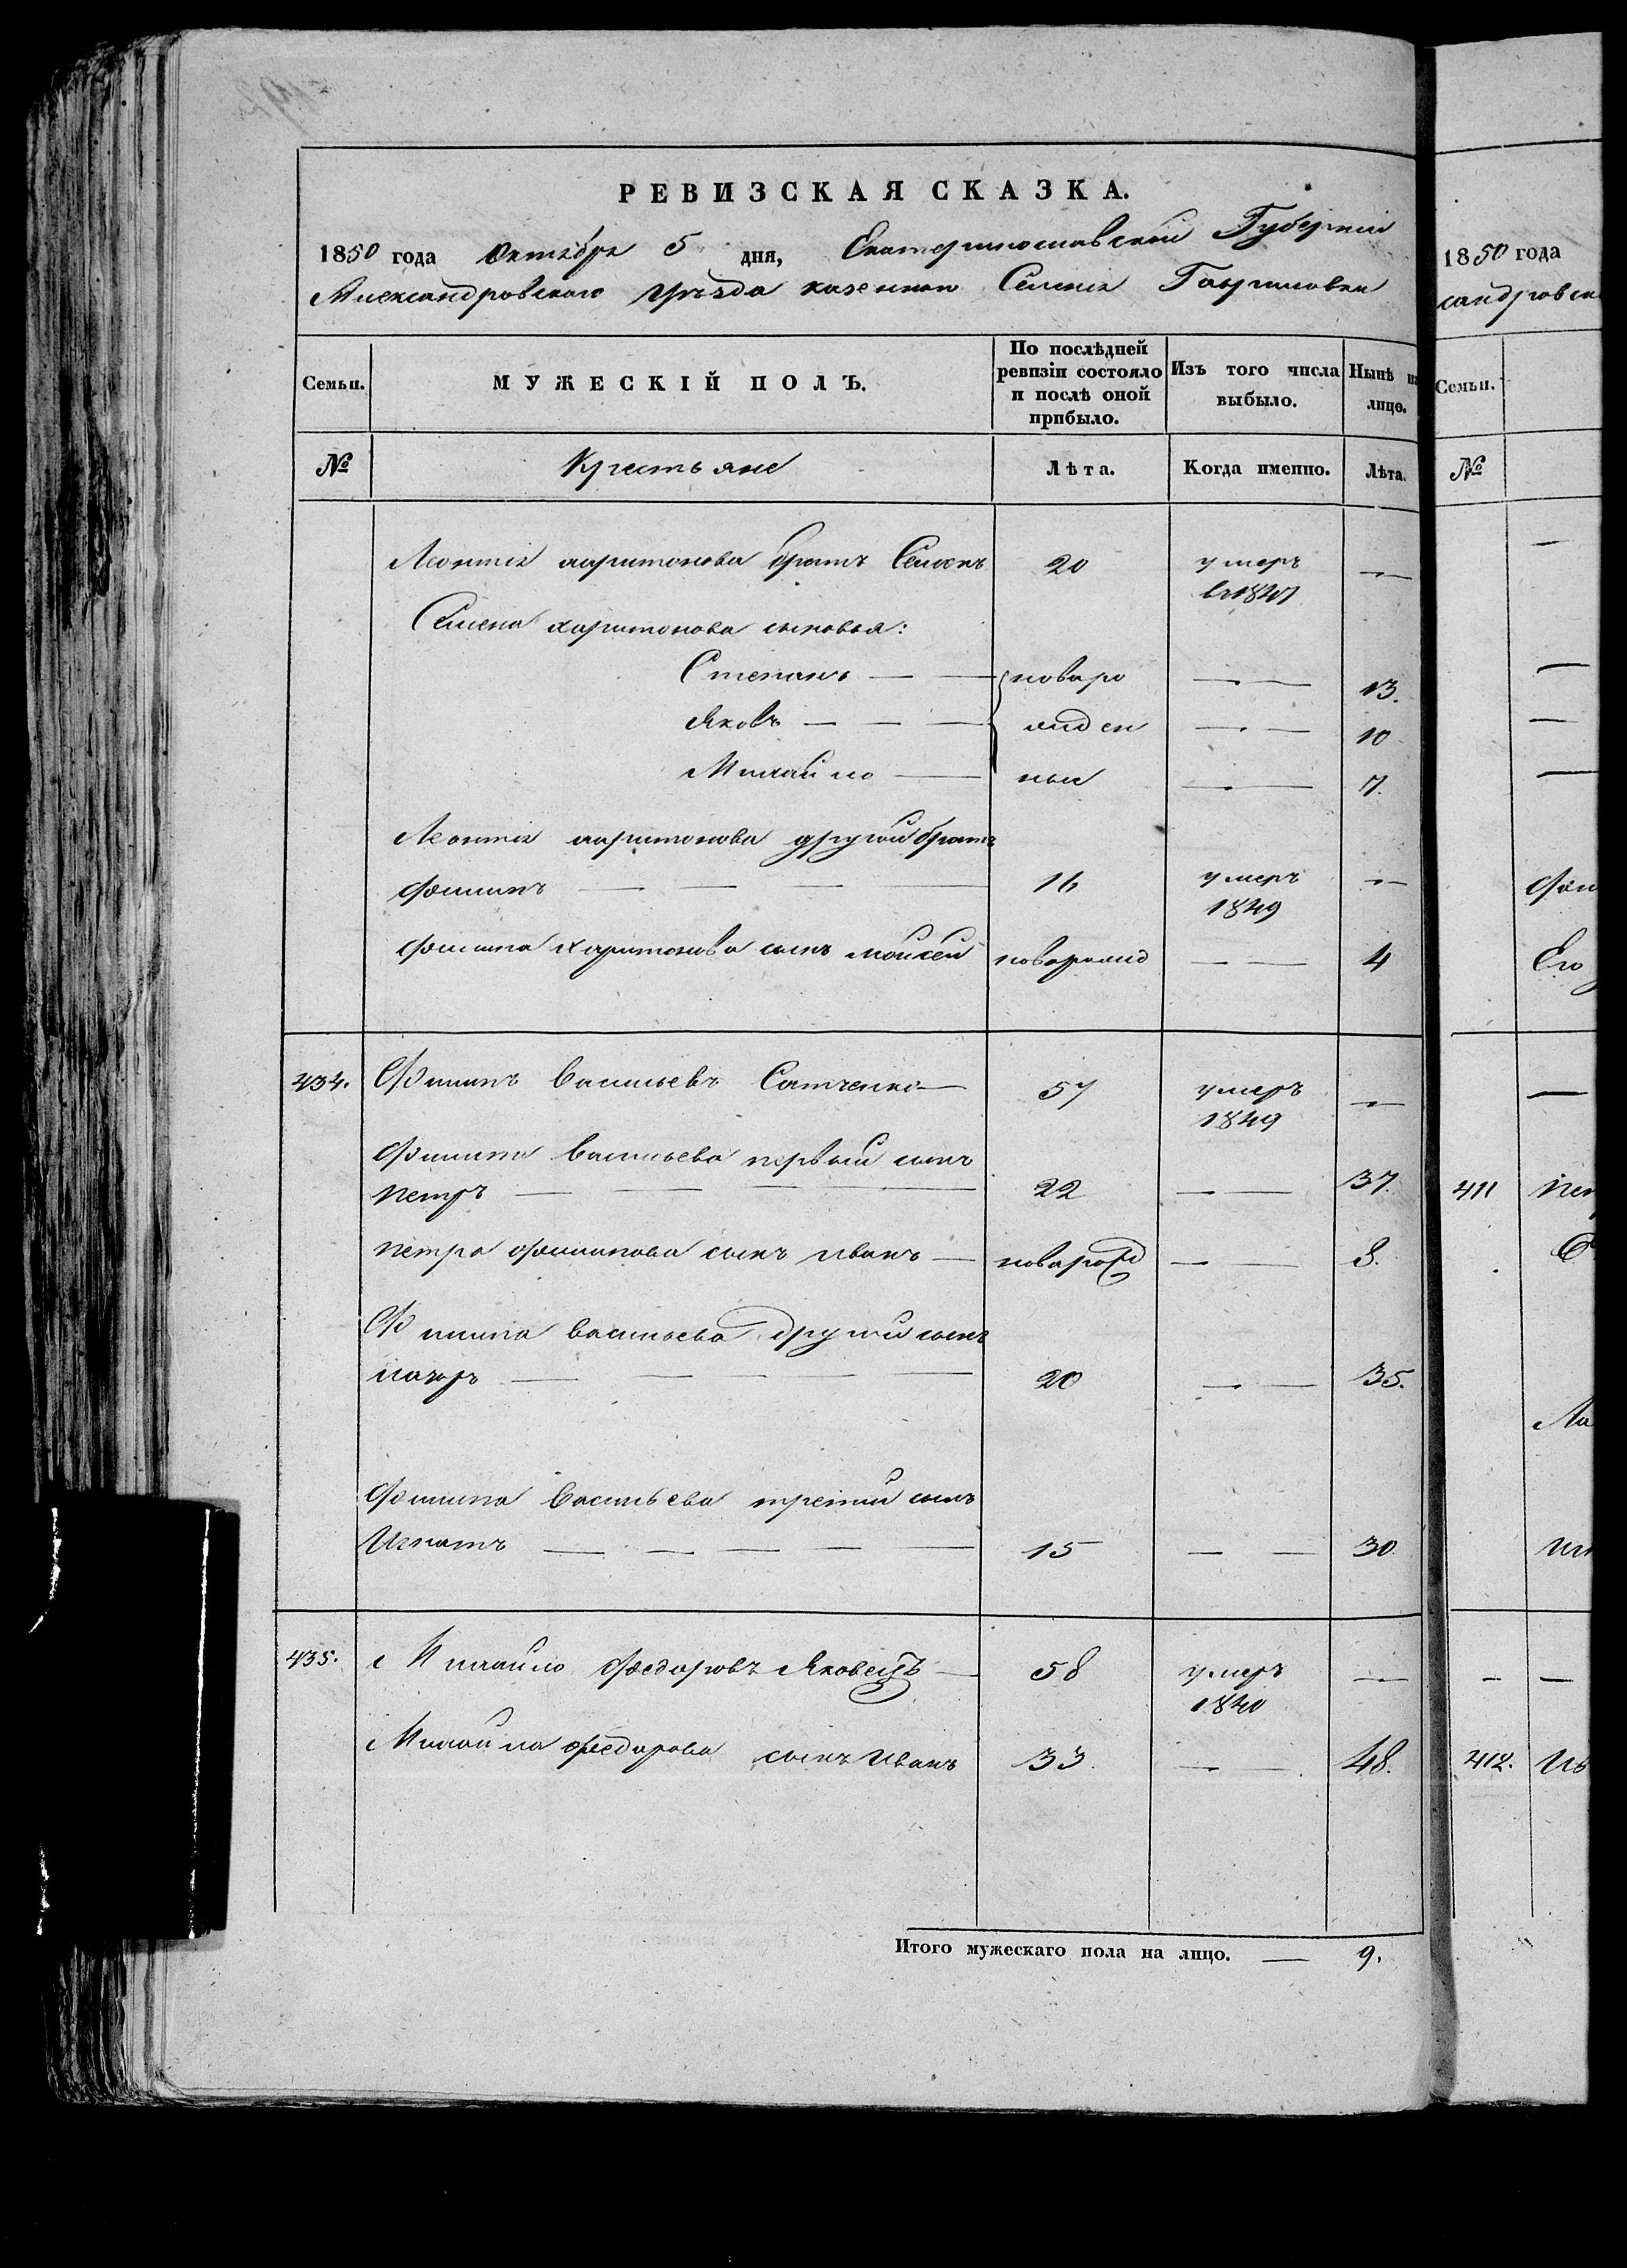 РЕВИЗСКАЯ СКАЗКА.
1850 года Октября 5 дня, Екатеринославской Губерніи
Александровскаго уѣзда казеннаго Селенія Гавриловки
Семьи. МУЖЕСКІЙ ПОЛЪ. По послѣдней ревизіи состояло и послѣ оной прибыло. Изъ того числа выбыло. Нынѣ на лицо.
№ Крестьяне Лѣта. Когда именно. Лѣта.
Леонтія харитонова братъ Семенъ 20 умеръ —
въ1847
Семена харитонова сыновья:
Степанъ — — новоро — — 13.
Яковъ — — — жден — — 10
Михайло — ные — 7.
Леонтія харитонова другой братъ
Филипъ — — — 16 умеръ —
1849
Филипа Харитонова сынъ Моисей новорожд — — 4
434. Филипъ Васильевъ Сатченко — 57 умеръ —
1849
Филипа Васильева первый сынъ
петръ — — — — 22 — — 37.
петра филипова сынъ иванъ — новорожд — — 8.
Филипа васильева другой сынъ
назаръ — — — — 20 — — 35.
Филипа Васильева третий сынъ
Игнатъ — — — — — 15 — — 30
435. Михайло Федоровъ Яковецъ — 58 умеръ —
1840
Михайла федорова сынъ иванъ 33. — — 48.
Итого мужескаго пола на лицо. — 9.
1850 года
сандровска
Семьи.
№
Его
411
412. Ив